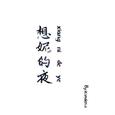 想妮的夜
xiang ni de ye